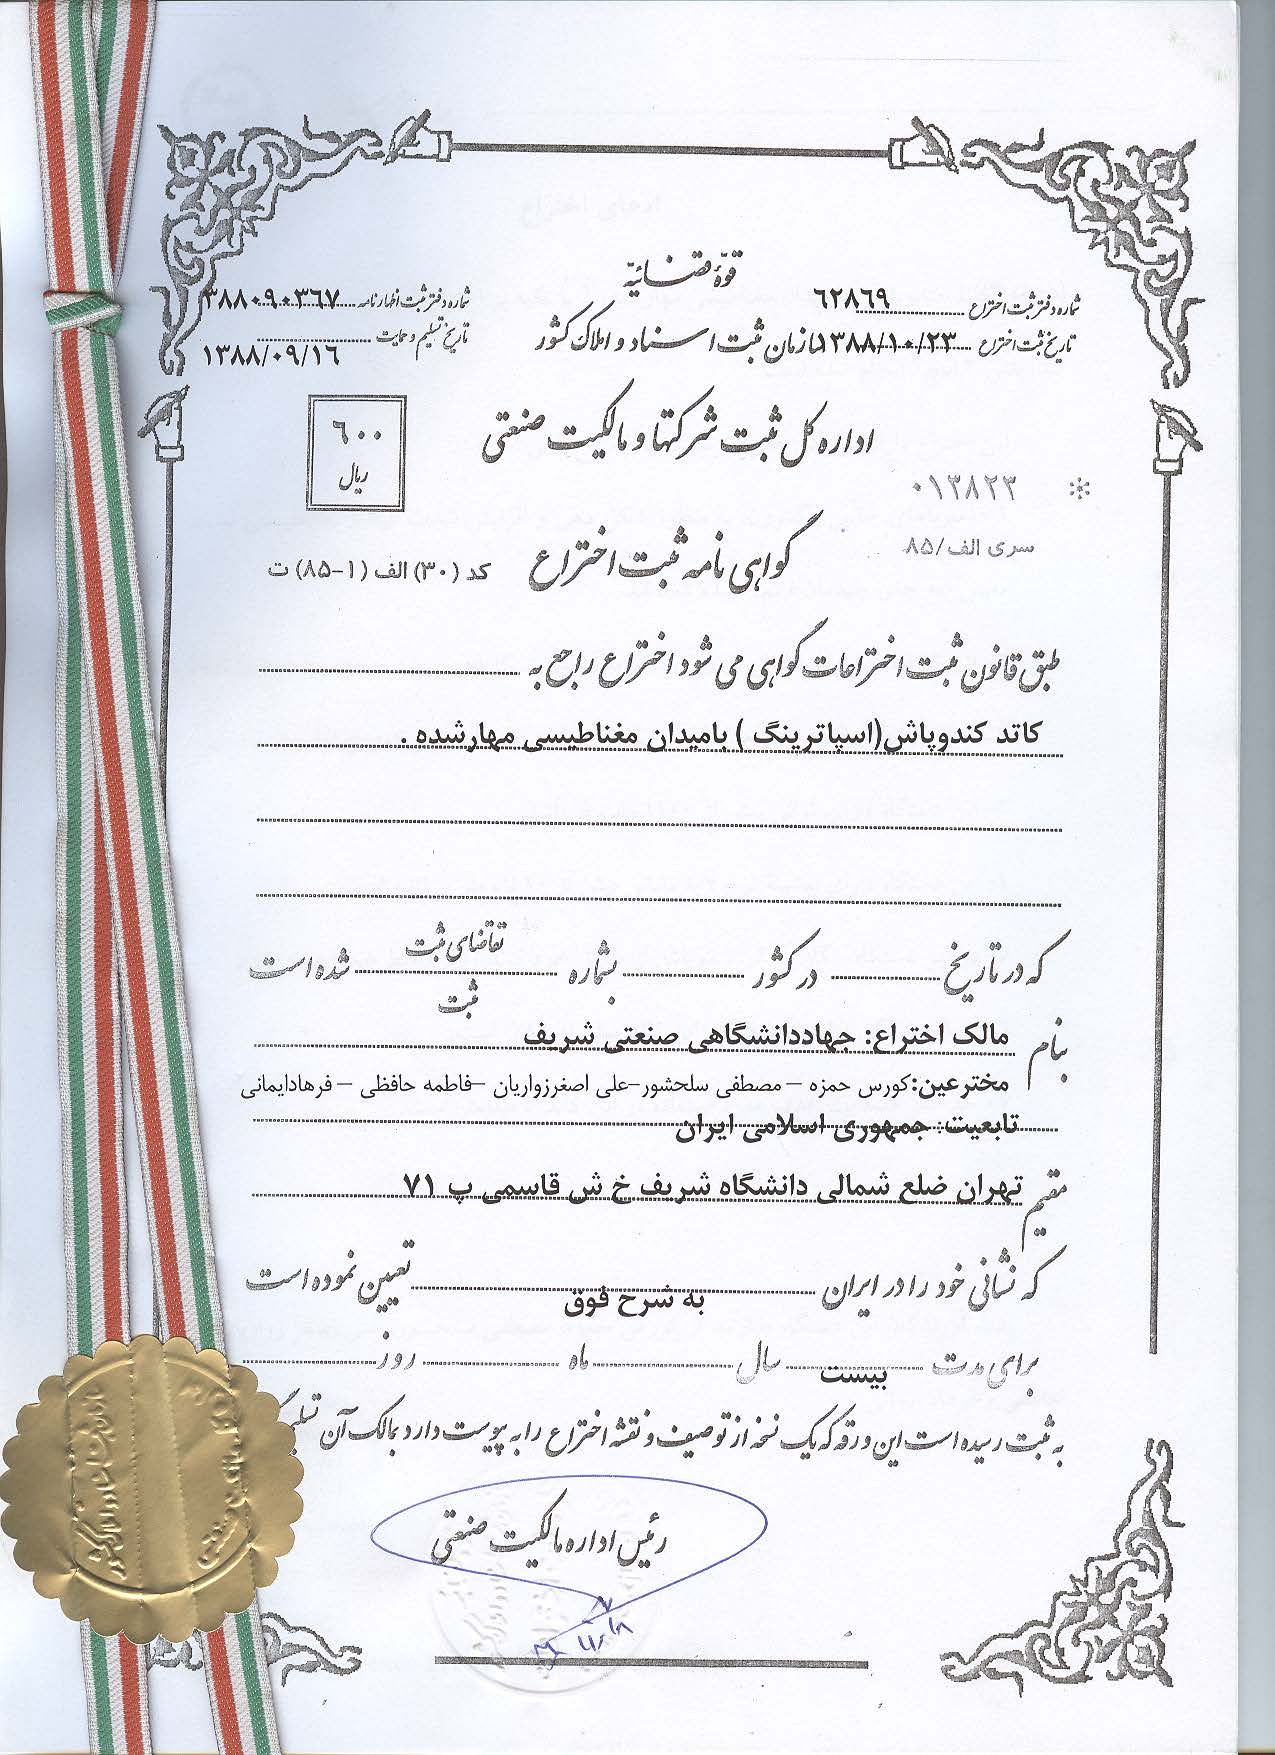 قوهٔ قضائیه
شماره دفتر ثبت اختراع ۶۲۸۶۹
شماره دفتر ثبت اظهارنامه ۳۸۸۰۹۰۳۶۷
تاریخ ثبت اختراع ۱۳۸۸/۱۰/۲۳
سازمان ثبت اسناد و املاک کشور
تاریخ تسلیم و حمایت ۱۳۸۸/۰۹/۱۶
اداره کل ثبت شرکتها و مالکیت صنعتی
۶۰۰
ریال
۰۱۳۸۲۳
سری الف/۸۵
گواهی نامه ثبت اختراع
کد (۳۰) الف (۱-۸۵) ت
طبق قانون ثبت اختراعات گواهی می شود اختراع راجع به
کاتد کندوپاش(اسپاترینگ ) بامیدان مغناطیسی مهارشده .
که در تاریخ در کشور بشماره تقاضای ثبت شده است
ثبت
بنام مالک اختراع: جهاددانشگاهی صنعتی شریف
مخترعین:کورس حمزه – مصطفی سلحشور–علی اصغرزواریان –فاطمه حافظی – فرهادایمانی
تابعیت: جمهوری اسلامی ایران
مقیم تهران ضلع شمالی دانشگاه شریف خ ش قاسمی پ ۷۱
که نشانی خود را در ایران به شرح فوق تعیین نموده است
برای مدت بیست سال ماه روز
به ثبت رسیده است این ورقه که یک نسخه از توصیف و نقشه اختراع را به پیوست دارد بمالک آن
رئیس اداره مالکیت صنعتی